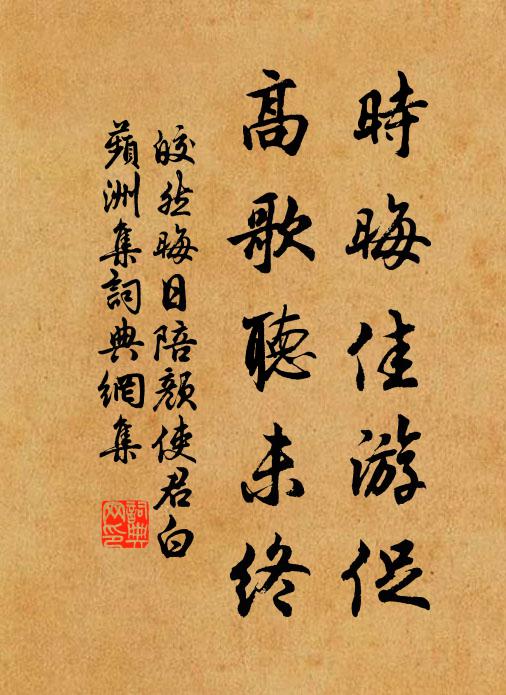 時晦佳游促
高歌聽未終
皎然晦日陪顏使君白
蘋洲集詞典網集
詞典
网印